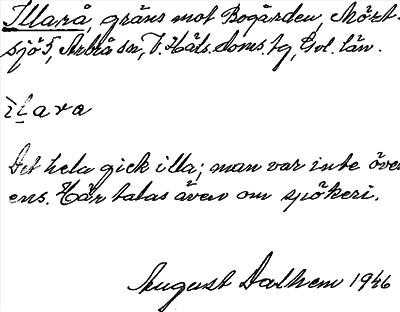 Illarå, gräns mot Bogården, Mört-
sjö 5, Arbrå sn, V. Häls. doms. tg, Gvl. län.
ilara
Det hela gick illa; man var inte över
ens. Här talas även om spökeri.
August Dalhem 1946